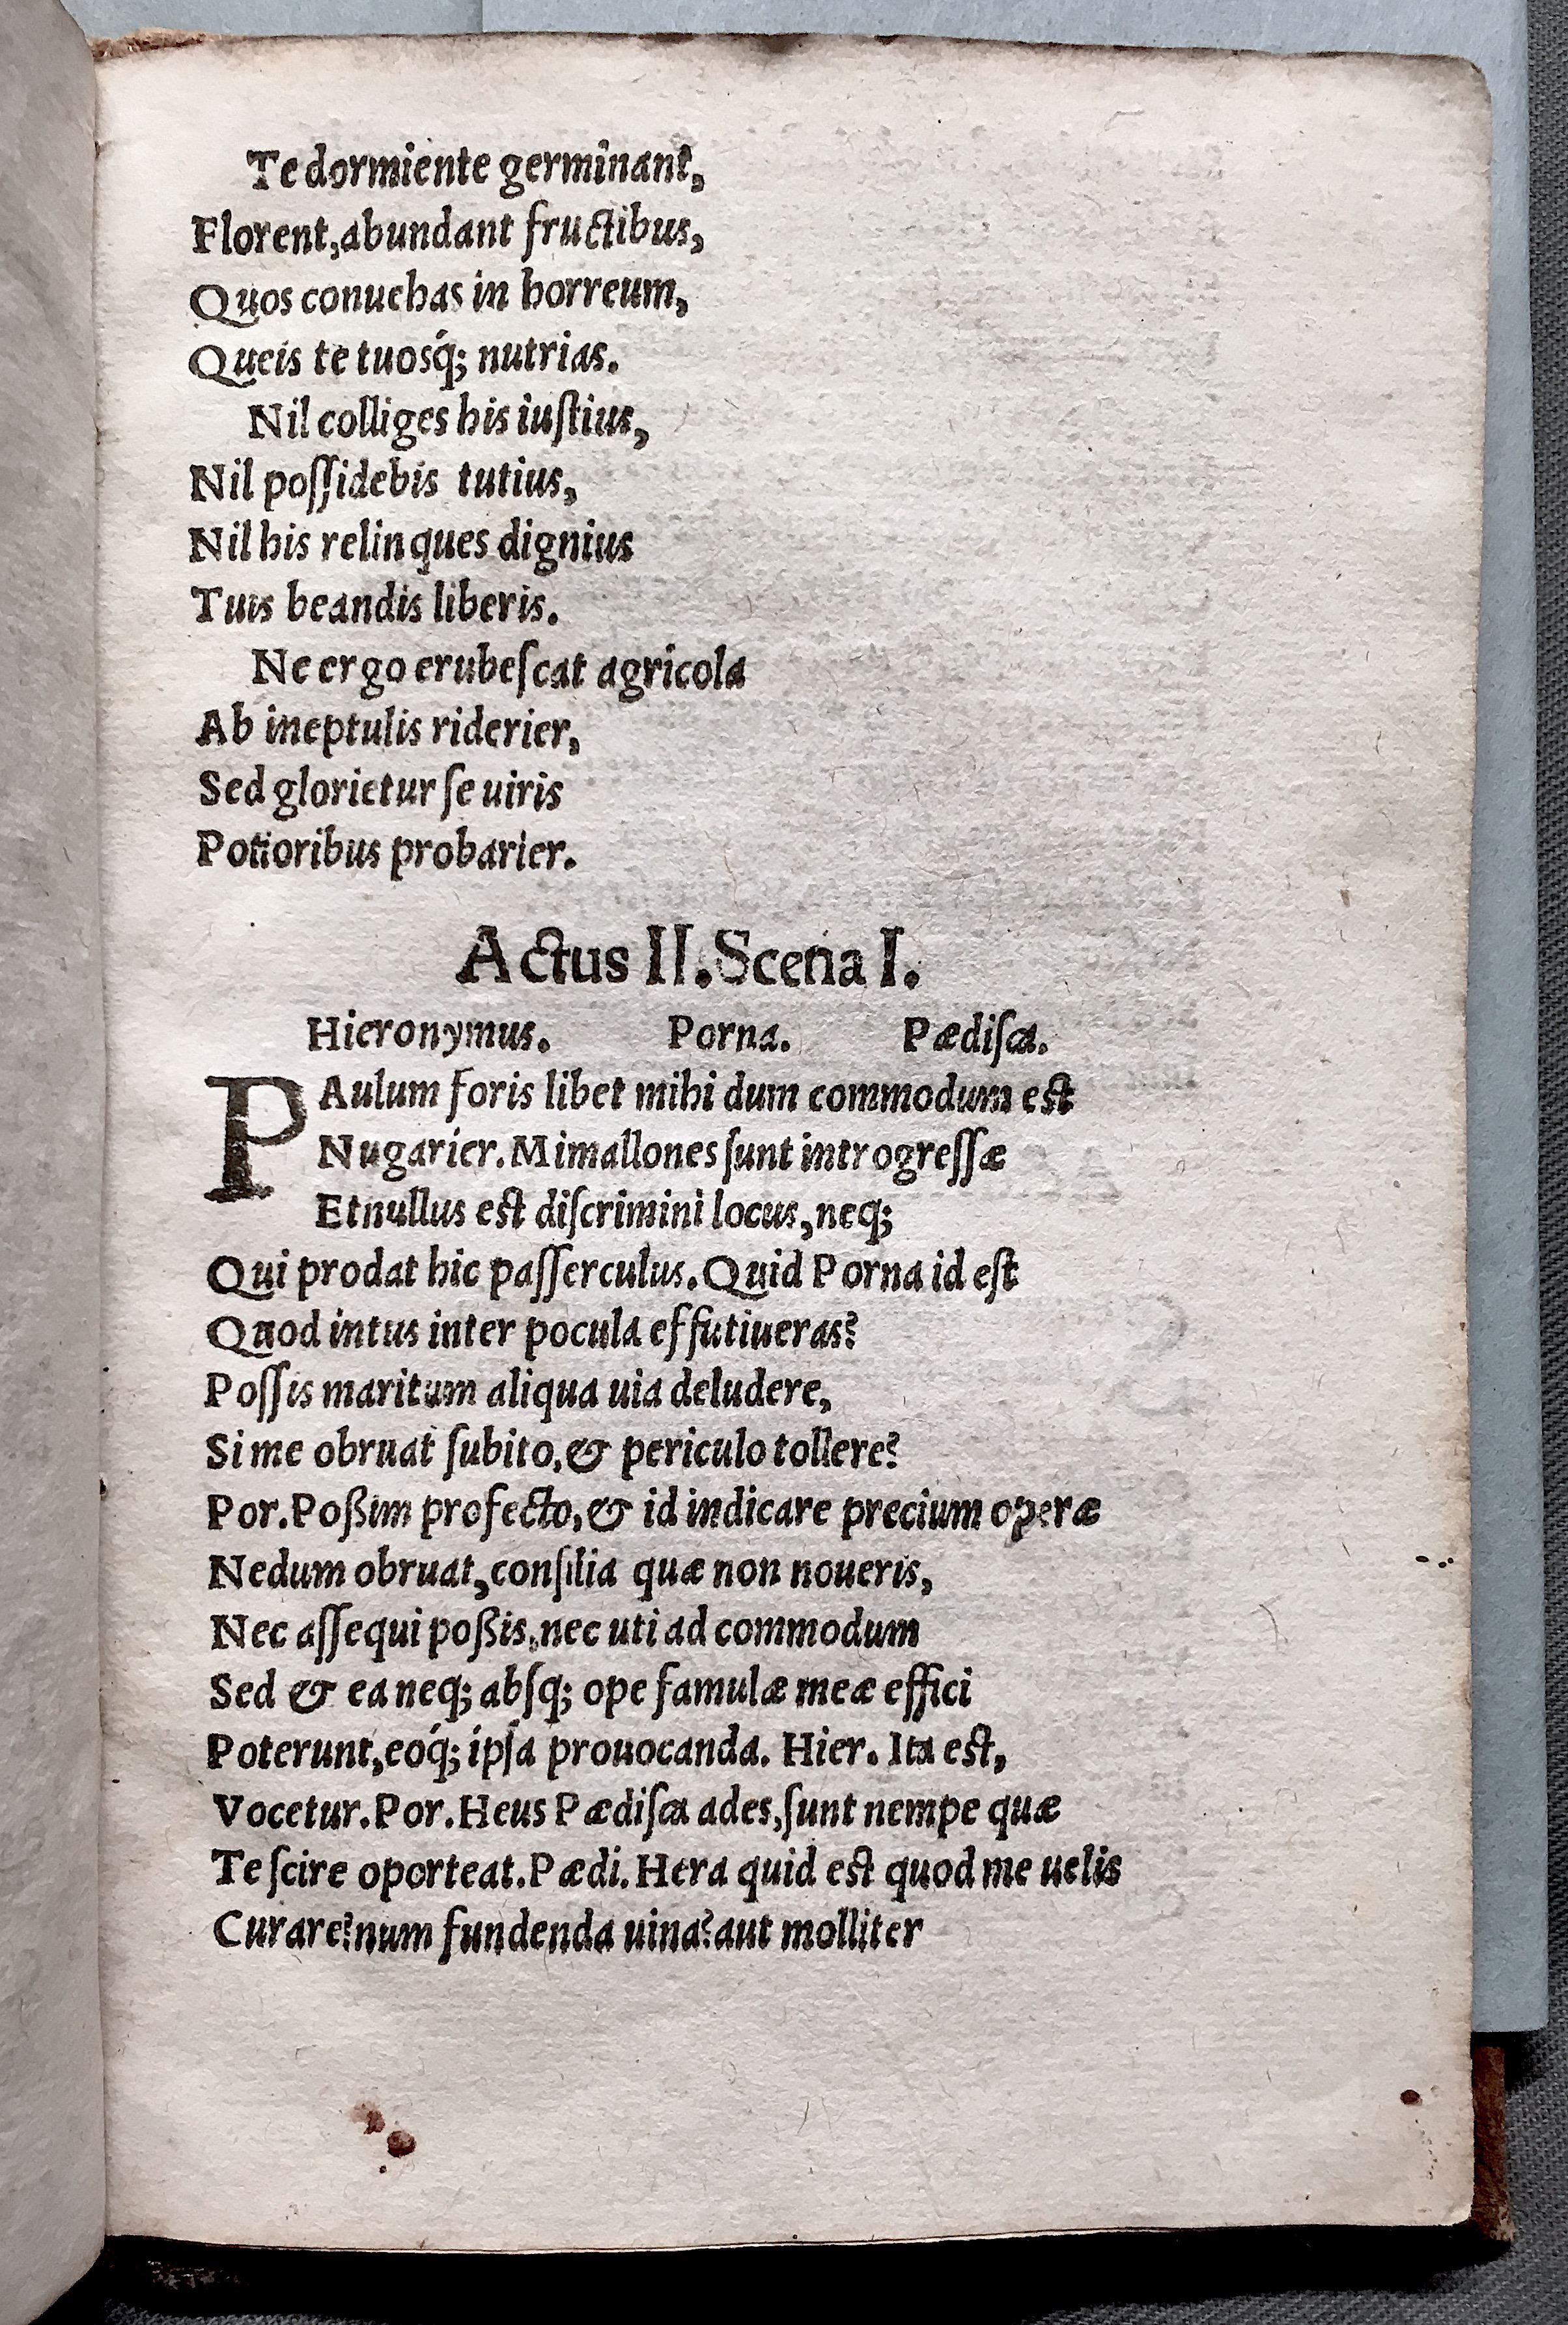 Te dormiente germinant,
Florent, abundant fructibus,
Quos conuehas in horreum,
Queis te tuosq́; nutrias.
Nil colliges his iuſtius,
Nil poſſidebis tutius,
Nil his relinques dignius
Tuis beandis liberis.
Ne ergo erubeſcat agricola
Ab ineptulis riderier,
Sed glorietur ſe uiris
Potioribus probarier.
Actus II. Scena I.
Hieronymus. Porna. Pædiſca.
PAulum foris libet mihi dum commodum est
Nugarier. Mimallones ſunt introgreſſæ
Et nullus est diſcrimini locus, neq;
Qui prodat hic paſſerculus. Quid Porna id eſt
Quod intus inter pocula effutiueras?
Poſſis maritum aliqua uia deludere,
Si me obruat ſubito, & periculo tollere?
Por. Poßim profecto, & id indicare precium operæ
Nedum obruat, conſilia quæ non noueris,
Nec aſſequi poßis, nec uti ad commodum
Sed & ea neq; abſq; ope famulæ meæ effici
Poterunt, eoq́; ipſa prouocanda. Hier. Ita est,
Vocetur. Por. Heus Pædiſca ades, ſunt nempe quæ
Te ſcire oporteat. Pædi. Hera quid est quod me uelis
Curare? num fundenda uina? aut molliter